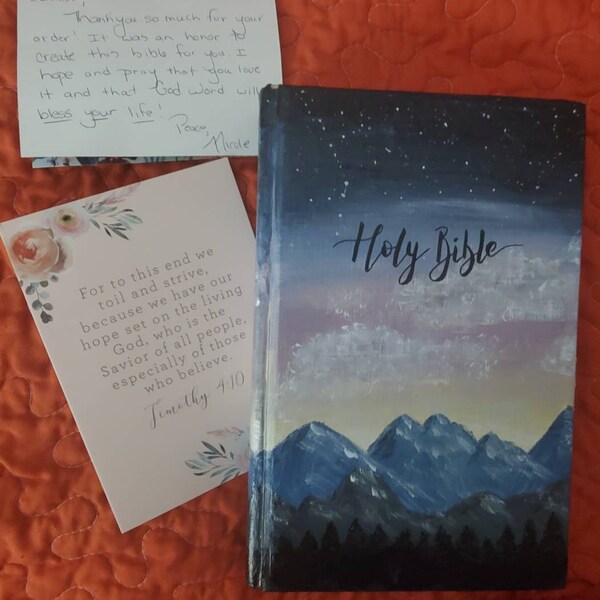 Thankyou so much for your
order! It was an honor to
create this bible for you. I
hope and pray that you love
it and that God word will
bless your life!
Peace,
Nicole
For to this end we
toil and strive,
because we have our
hope set on the living
God, who is the
Savior of all people,
especially of those
who believe.
Timothy 4:10
Holy Bible